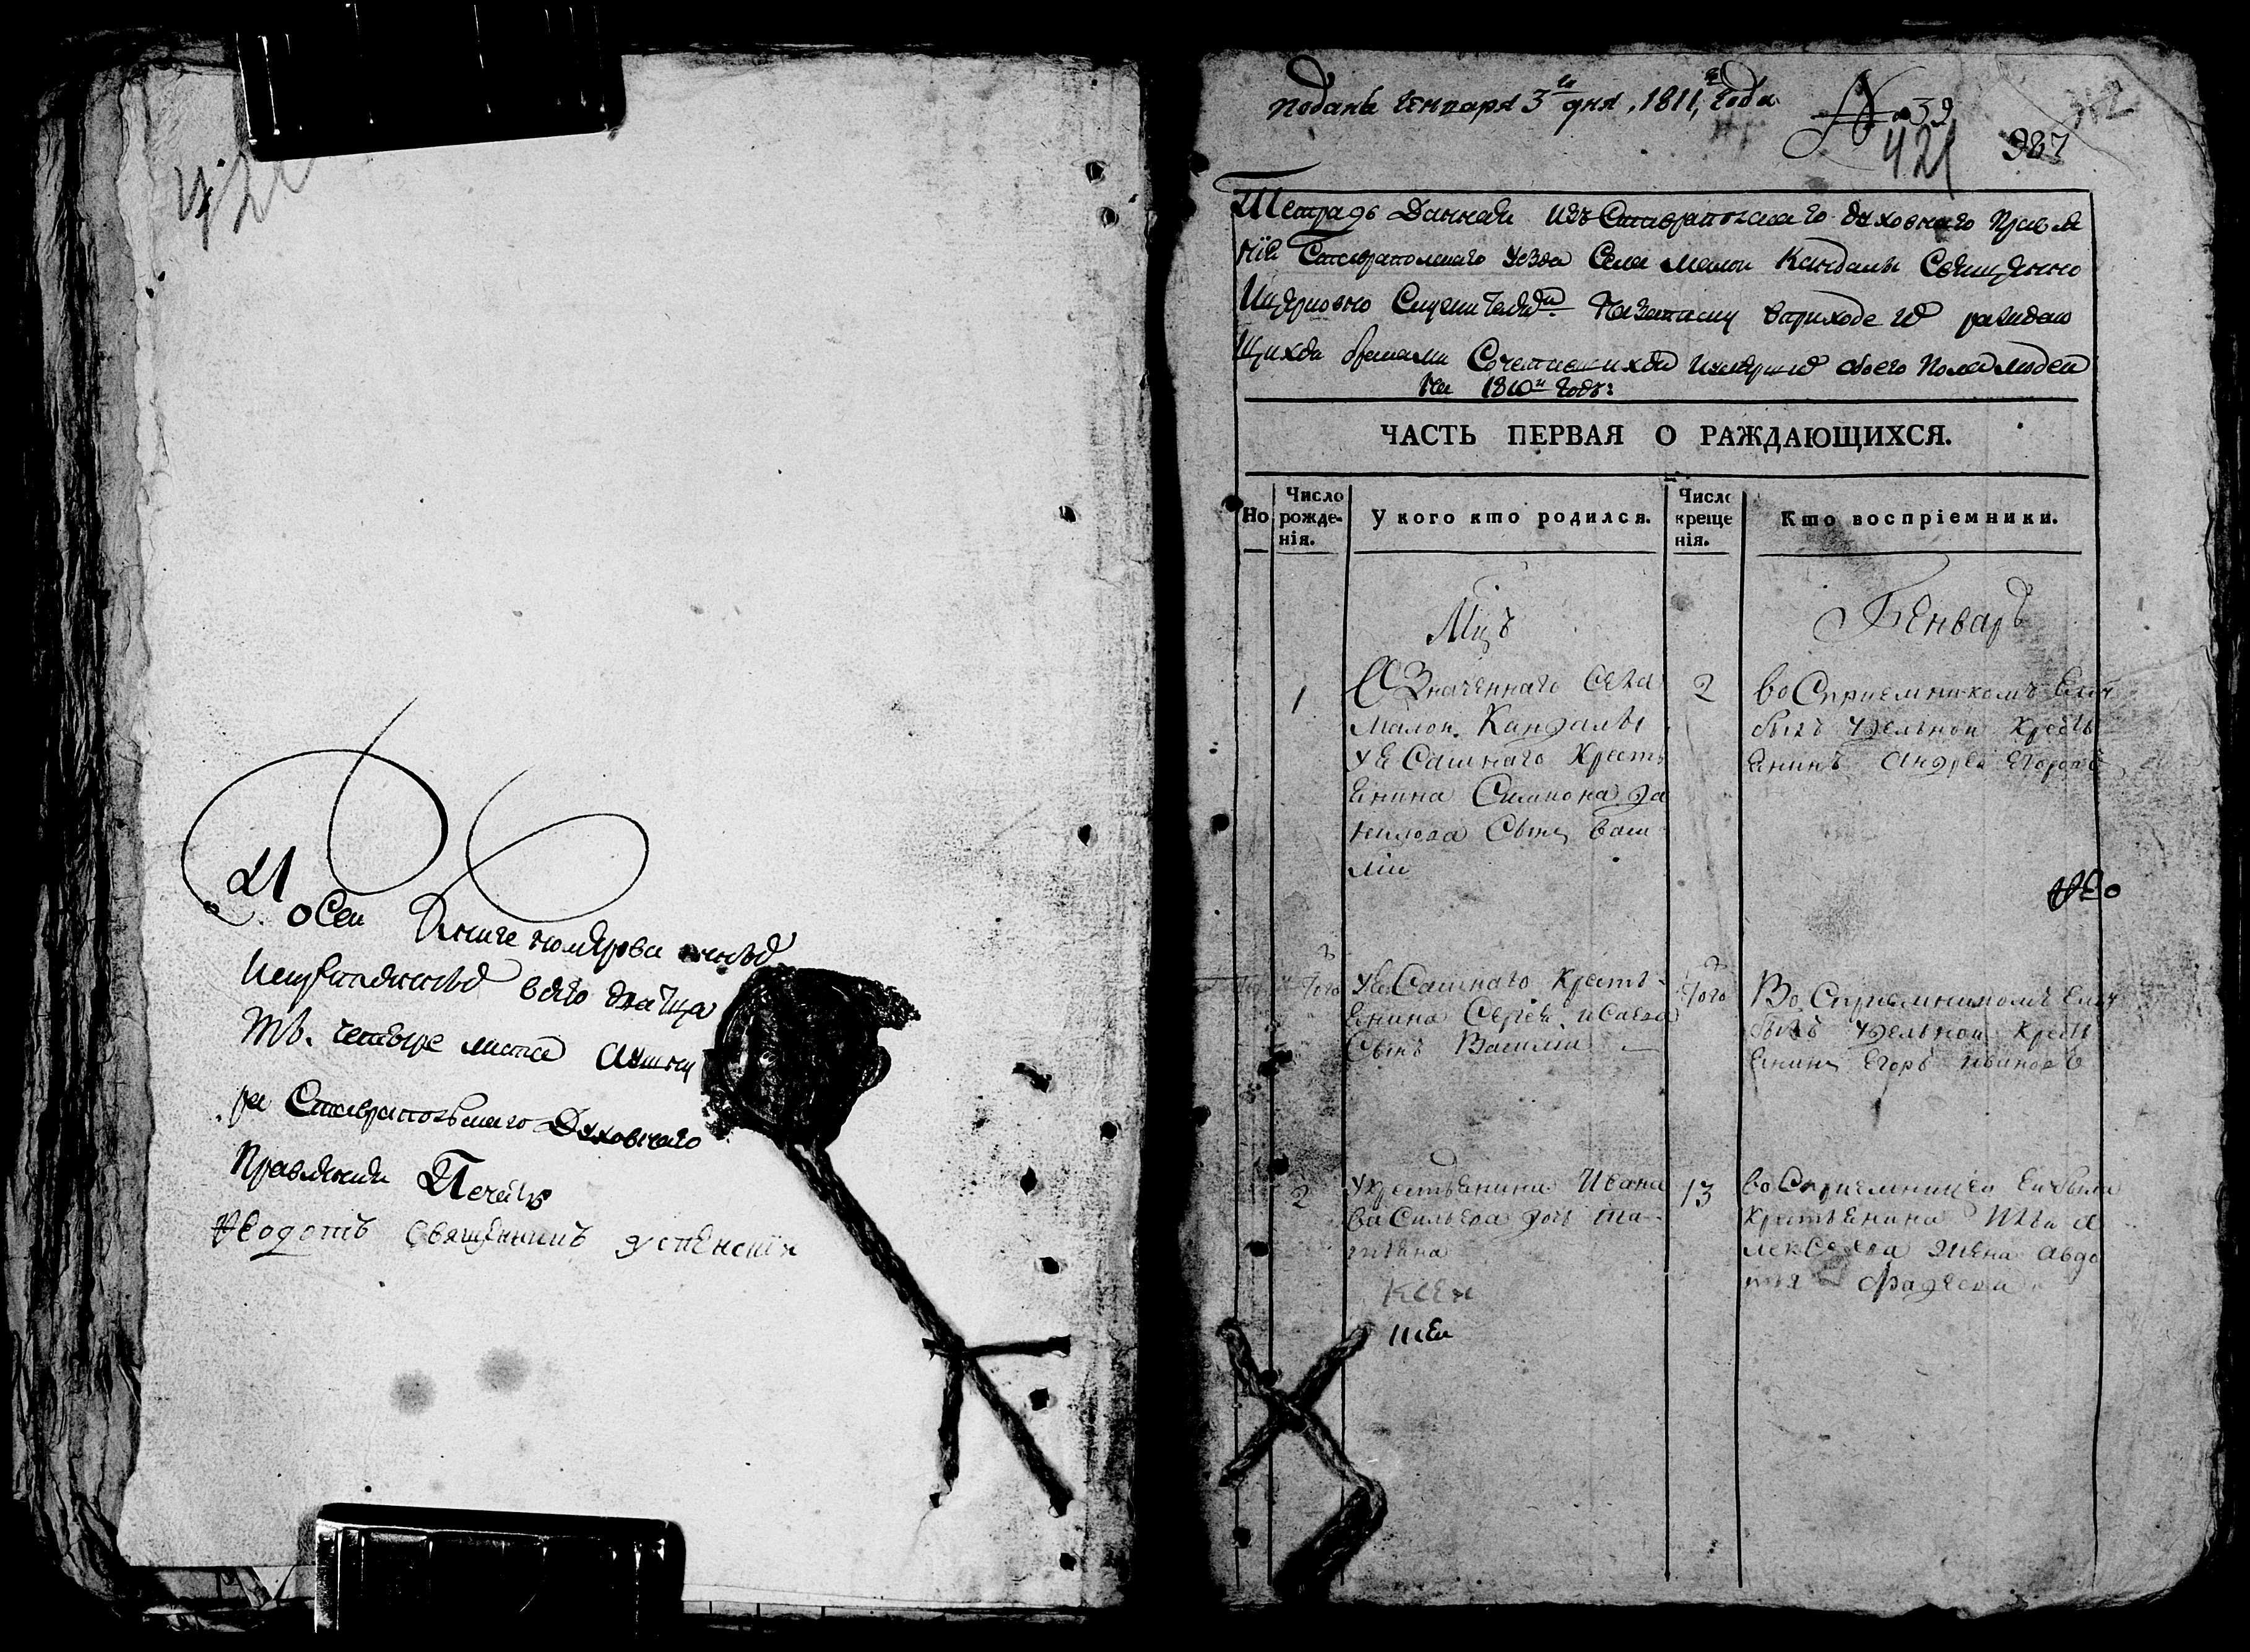 421
О сей Книге номерован ныхъ
всего дватца
ть четыре листа
ра Ставропольскаго Духовнаго
Правления Печать
Федотъ священникъ успенскій
Подана Генваря 3го дня, 1811го года
№ 39
421
987
312
Тетрадь Данная изъ Ставропольскаго духовнаго Правле
нія Ставропольскаго уезда Села малой Кандалы Священно
Ицерковно Служителямъ Назапись вприходе ихъ раждаю
Щихся браками Сочетавшихся иумершихъ обоего Пола людей
на 1810й годъ:
ЧАСТЬ ПЕРВАЯ О РАЖДАЮЩИХСЯ.
Но
Число рожденія.
У кого кто родился.
Число крещенія.
Кто воспріемники.
Мцъ
Генварь
1
Означеннаго Села
малой Кандалы
Крестъ
енина Симиона Да
нилова Сынъ Васи
лій
2
воСприемникомъ Ему
былъ удельной Крестъ
енинъ Андрей Егоровъ
Фео
Того
Крестъ
енина Сергея Исаева
Сынъ Василий
Того
Во Сприемникомъ Ему
былъ удельной Крестъ
енинъ Егоръ Ивановъ
2
укрестьенина Ивана
Васильева дочь Та
тиена
Ксен
13
воСприемницей Ей была
Крестьенина Ильи а
лексеева жена Авдо
тия Фадеева